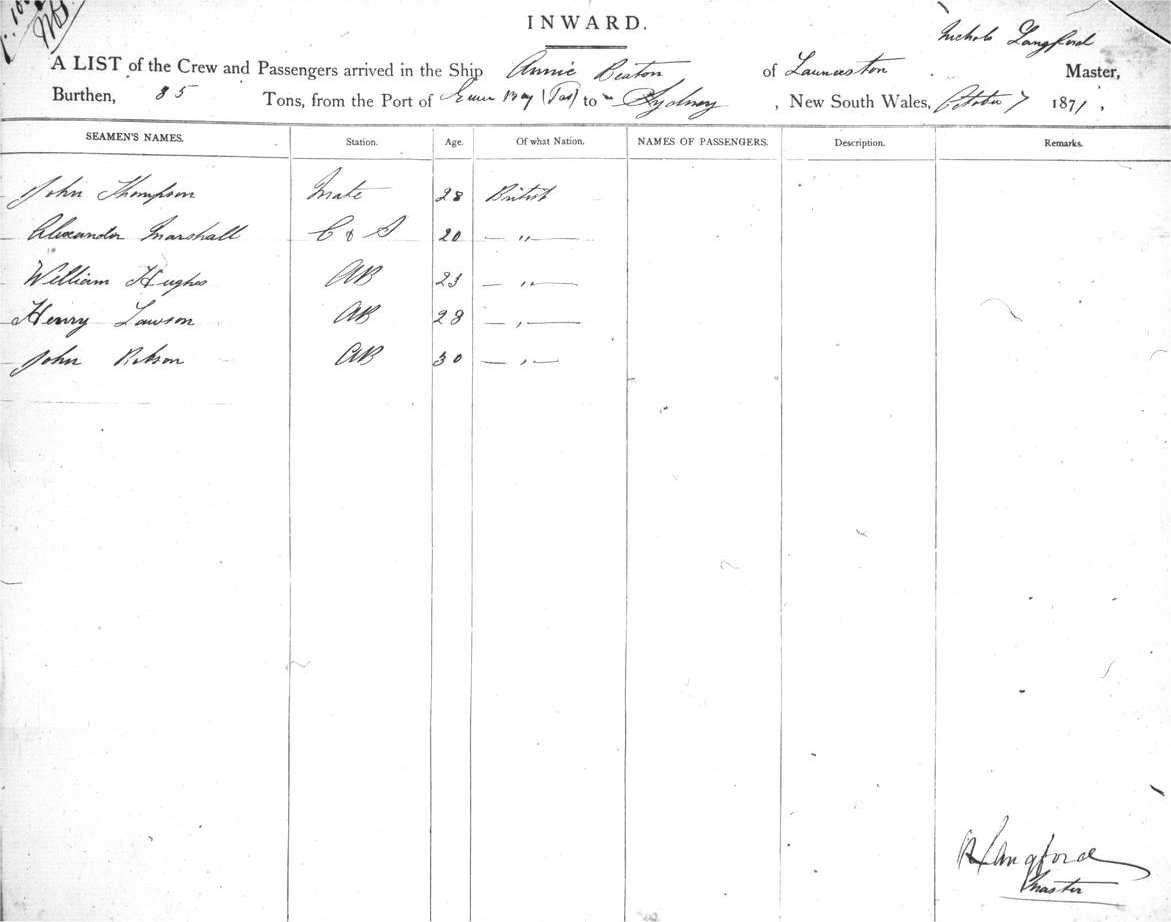 INWARD.
Nichols Langford
A LIST of the Crew and Passengers arrived in the Ship Annie Beaton of Launceston Master,
Burthen, 85 Tons, from the Port of Emu Bay (Tas) to Sydney, New South Wales, October 7 1871.
SEAMEN'S NAMES. Station. Age. Of what Nation. NAMES OF PASSENGERS. Description. Remarks.
John Thompson Mate 28 British
Alexander Marshall C & S 20 — " —
William Hughes AB 23 — " —
Henry Lawson AB 28 — " —
John Robson AB 30 — " —
Langford
Master